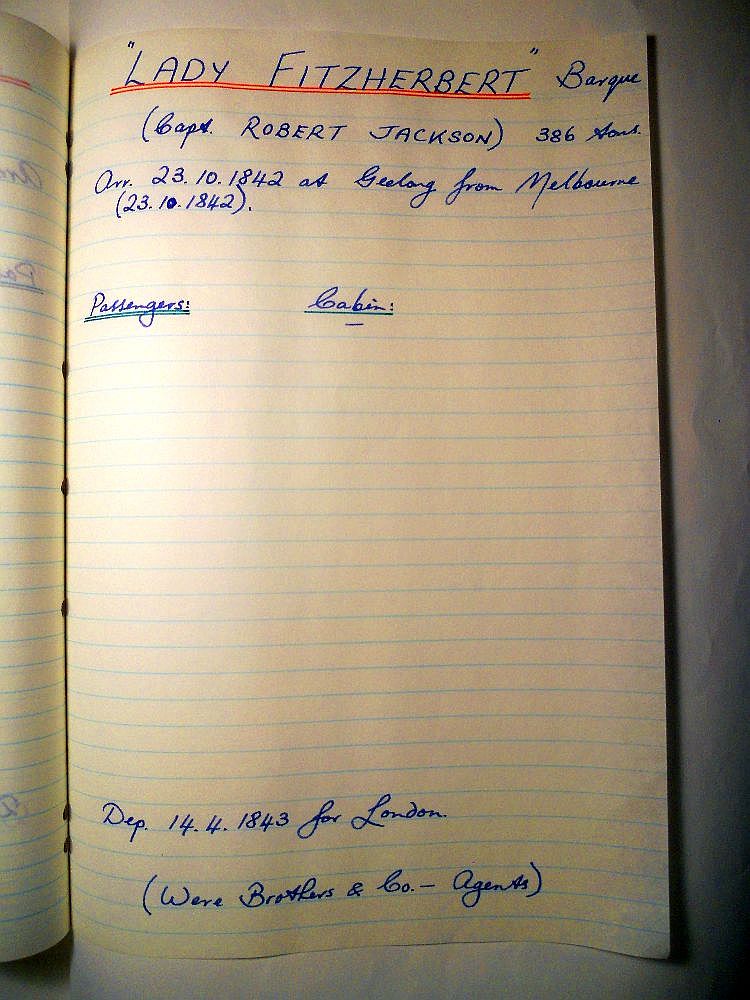 "LADY FITZHERBERT" Barque
(Capt. ROBERT JACKSON) 386 tons.
Arr. 23.10.1842 at Geelong from Melbourne
(23.10.1842).
Passengers: Cabin:
Dep. 14.4.1843 for London.
(Were Brothers & Co. – Agents)